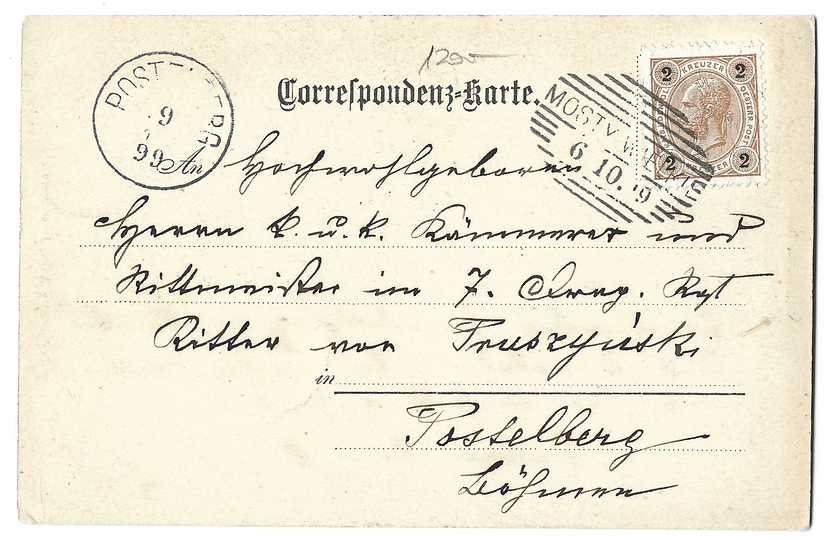 1200-
Correspondenz-Karte.
POSTELBERG
9
99
MOSTY WIELKIE
6 10. 9
2 KREUZER 2
OESTERR. POST
2 2
An Hochwohlgeboren
Herrn k. u. k. Kämmerer und
Rittmeister im 7. Drag. Rgt
Ritter von Truszyński
in
Postelberg
Böhmen